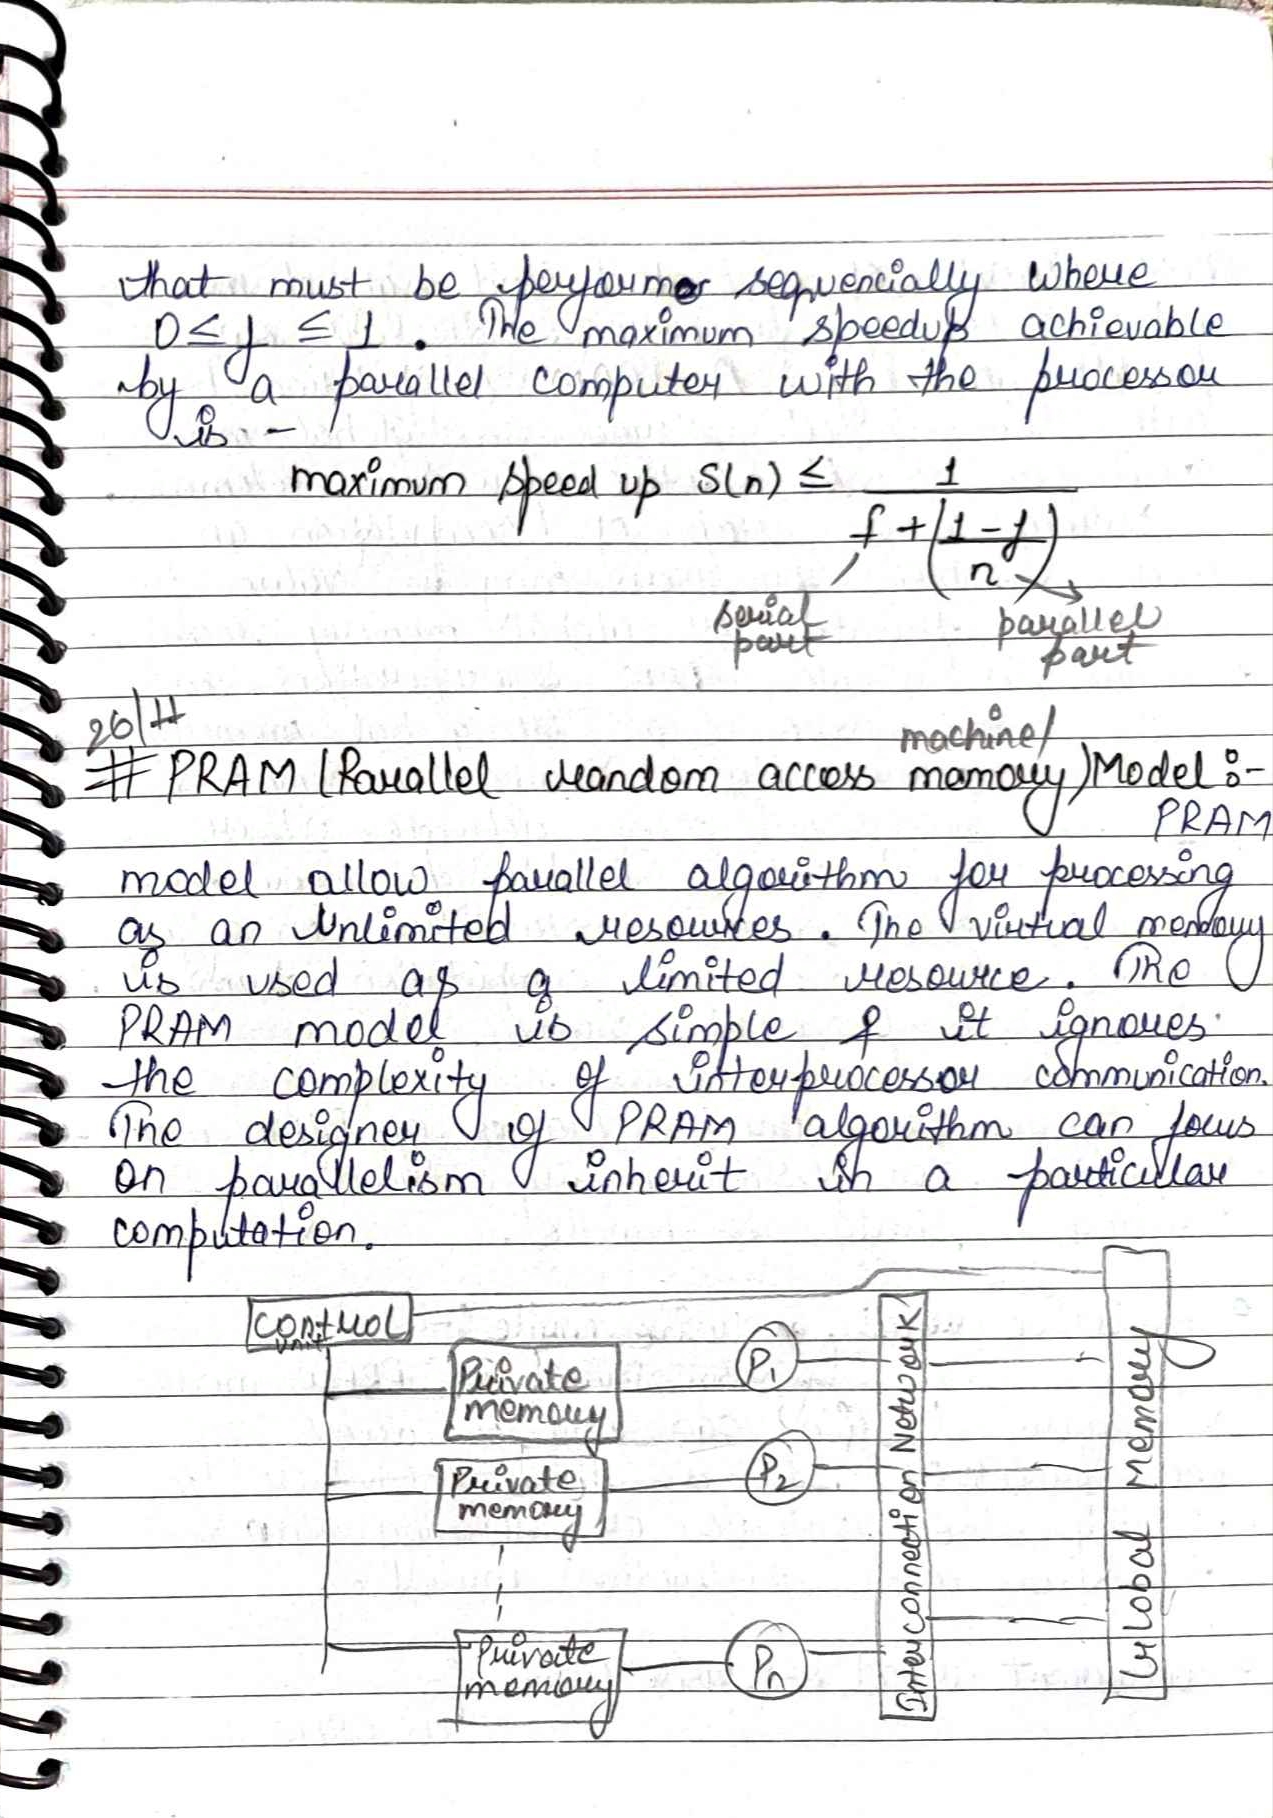 that must be performer sequencially where
0 ≤ f ≤ 1 . The maximum speedup achievable
by a parallel computer with the processor
is -
maximum speed up S(n) ≤ 1
f + (1-f
n)
serial part
parallel part
26/11
machine/
# PRAM (Parallel random access memory) Model :-
PRAM
model allow parallel algorithm for processing
as an Unlimited resources. The virtual memory
is used as a limited resource. The
PRAM model is simple & it ignores
the complexity of interprocessor communication.
The designer of PRAM algorithm can focus
on parallelism inherit in a particular
computation.
control
unit
Private
memory
P1
Private
memory
P2
Private
memory
Pn
Interconnection Network
Global memory